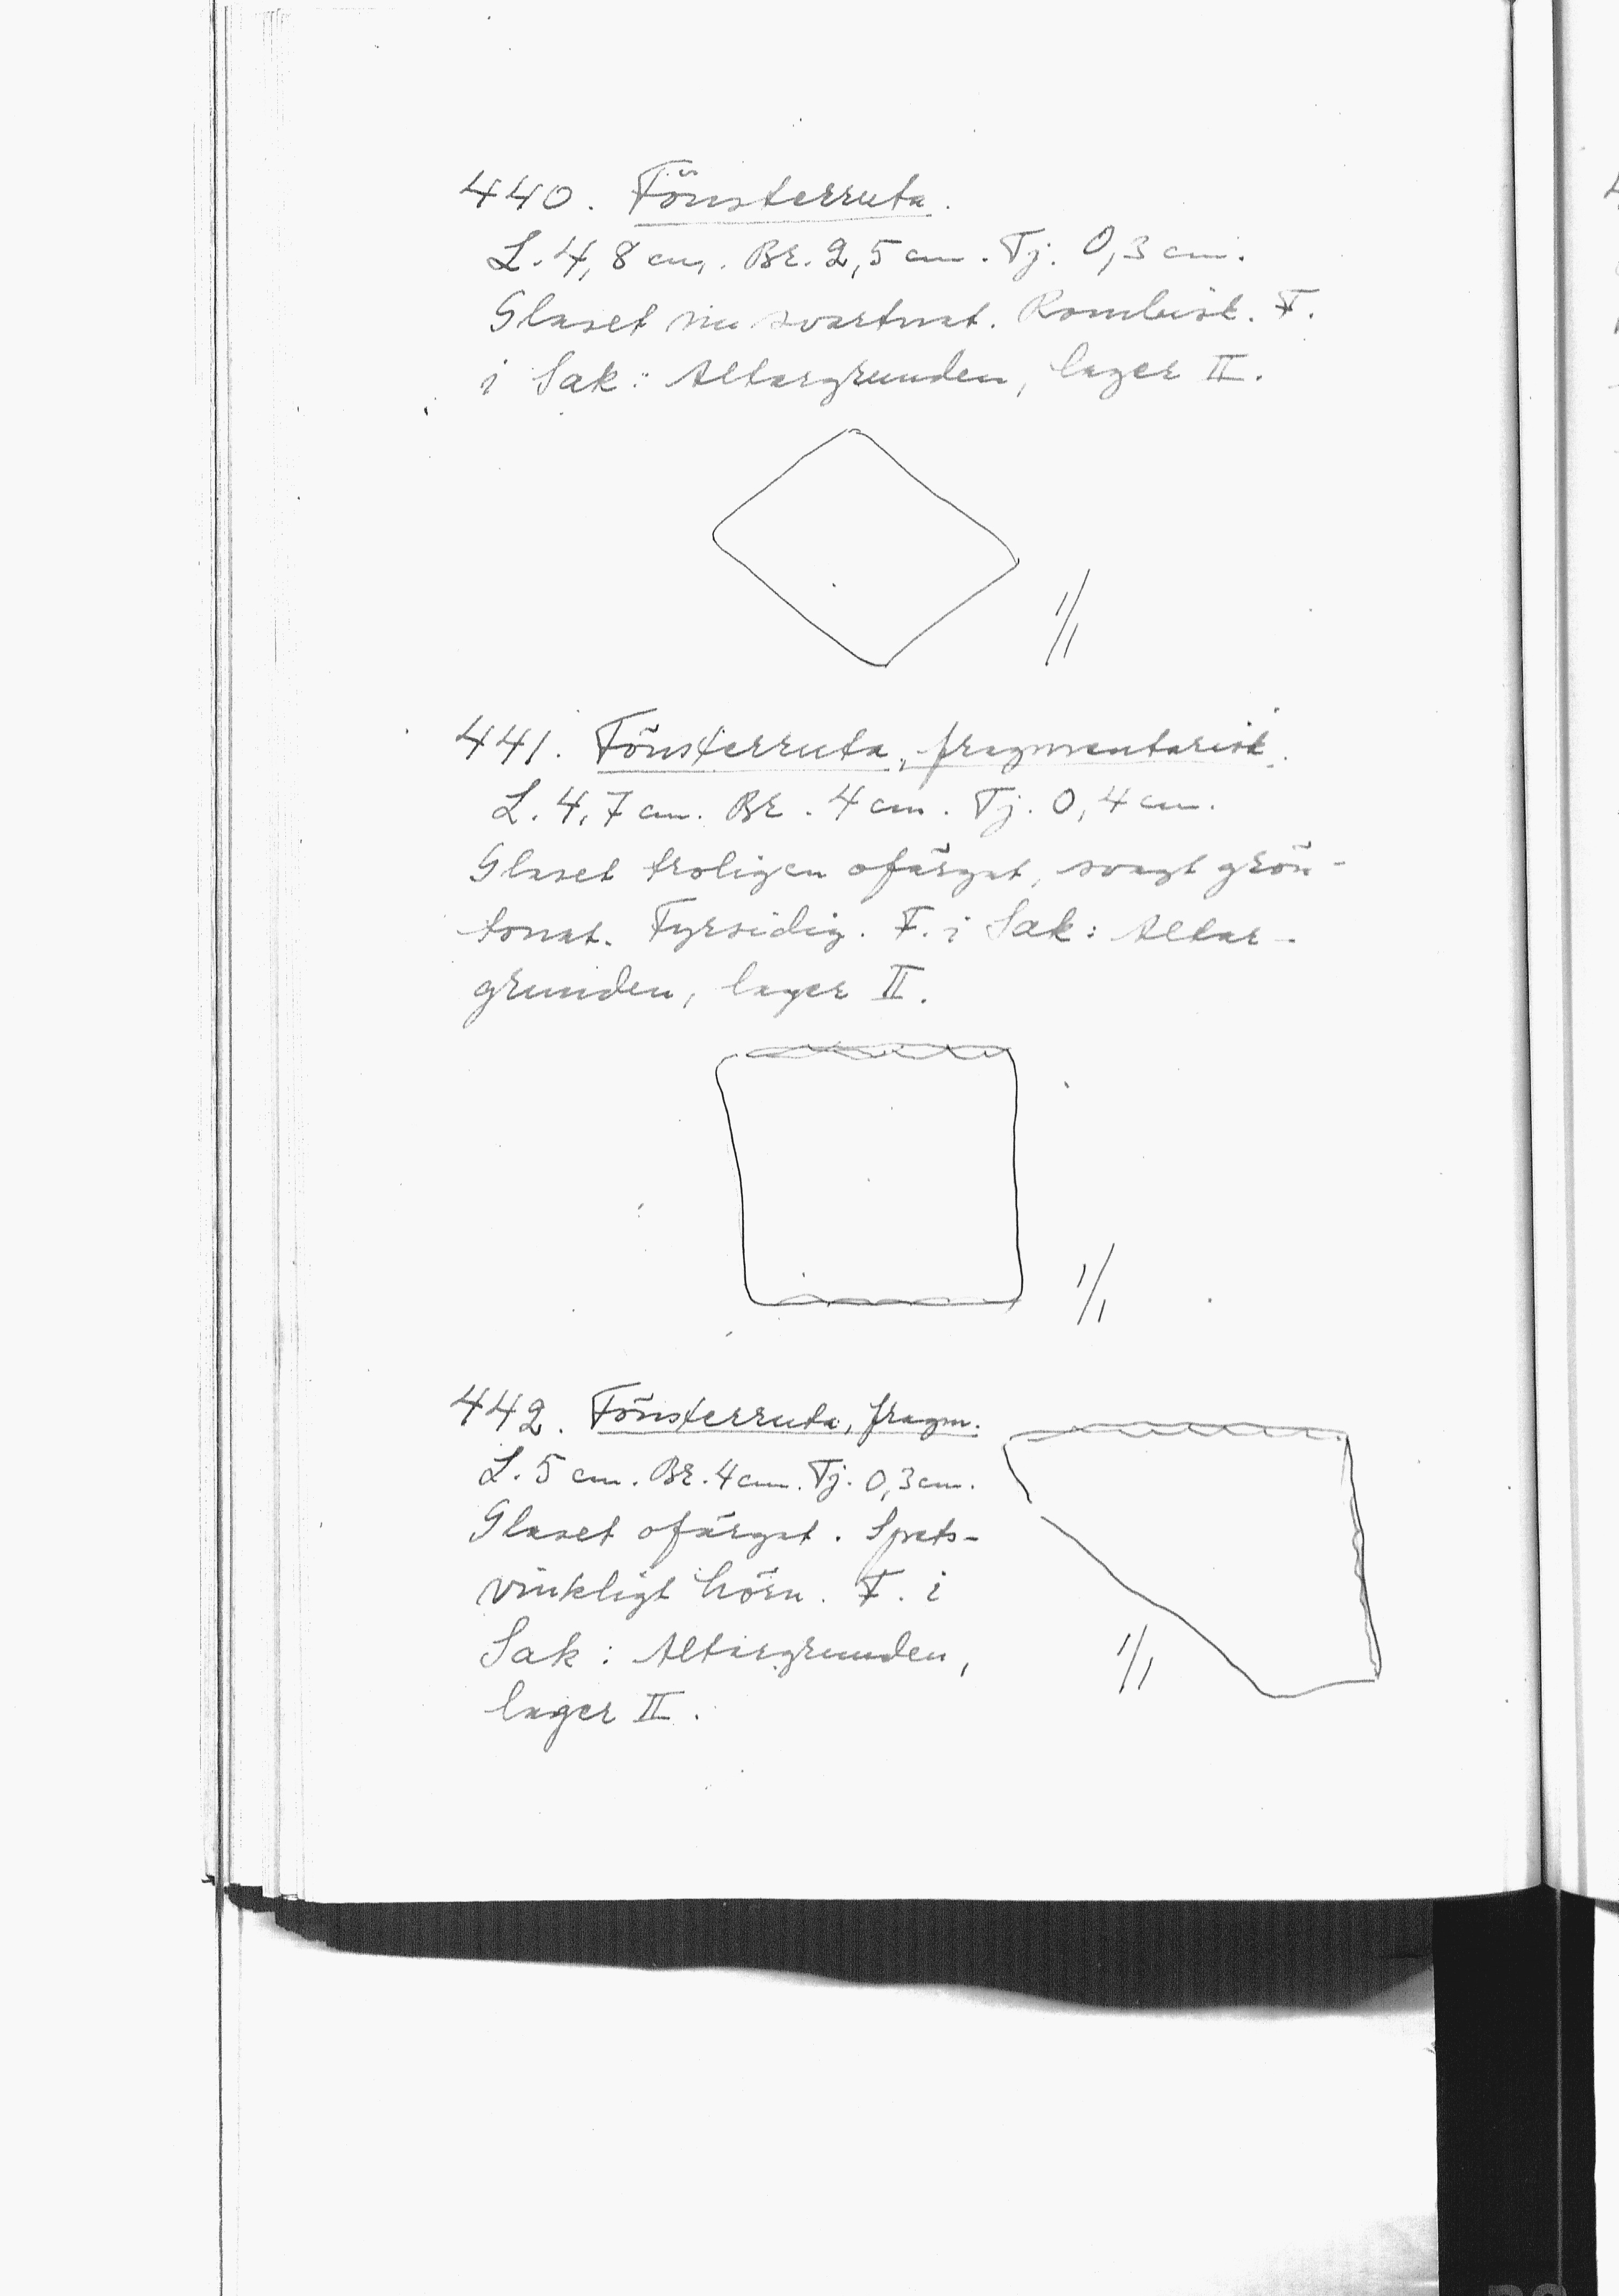 440. Fönsterruta.
L. 4,8 cm. Br. 2,5 cm. Tj. 0,3 cm.
Glaset nu svartnat. Rombisk. F.
i Sak: Altargrunden, lager II.
1/1
441. Fönsterruta, fragmentarisk.
L. 4,7 cm. Br. 4 cm. Tj. 0,4 cm.
Glaset troligen ofärgat, svagt grön-
tonat. Fyrsidig. F. i Sak: Altar-
grunden, lager II.
1/1
442. Fönsterruta, fragm.
L. 5 cm. Br. 4 cm. Tj. 0,3 cm.
Glaset ofärgat. Spets-
vinkligt hörn. F. i
Sak: Altargrunden,
lager II.
1/1